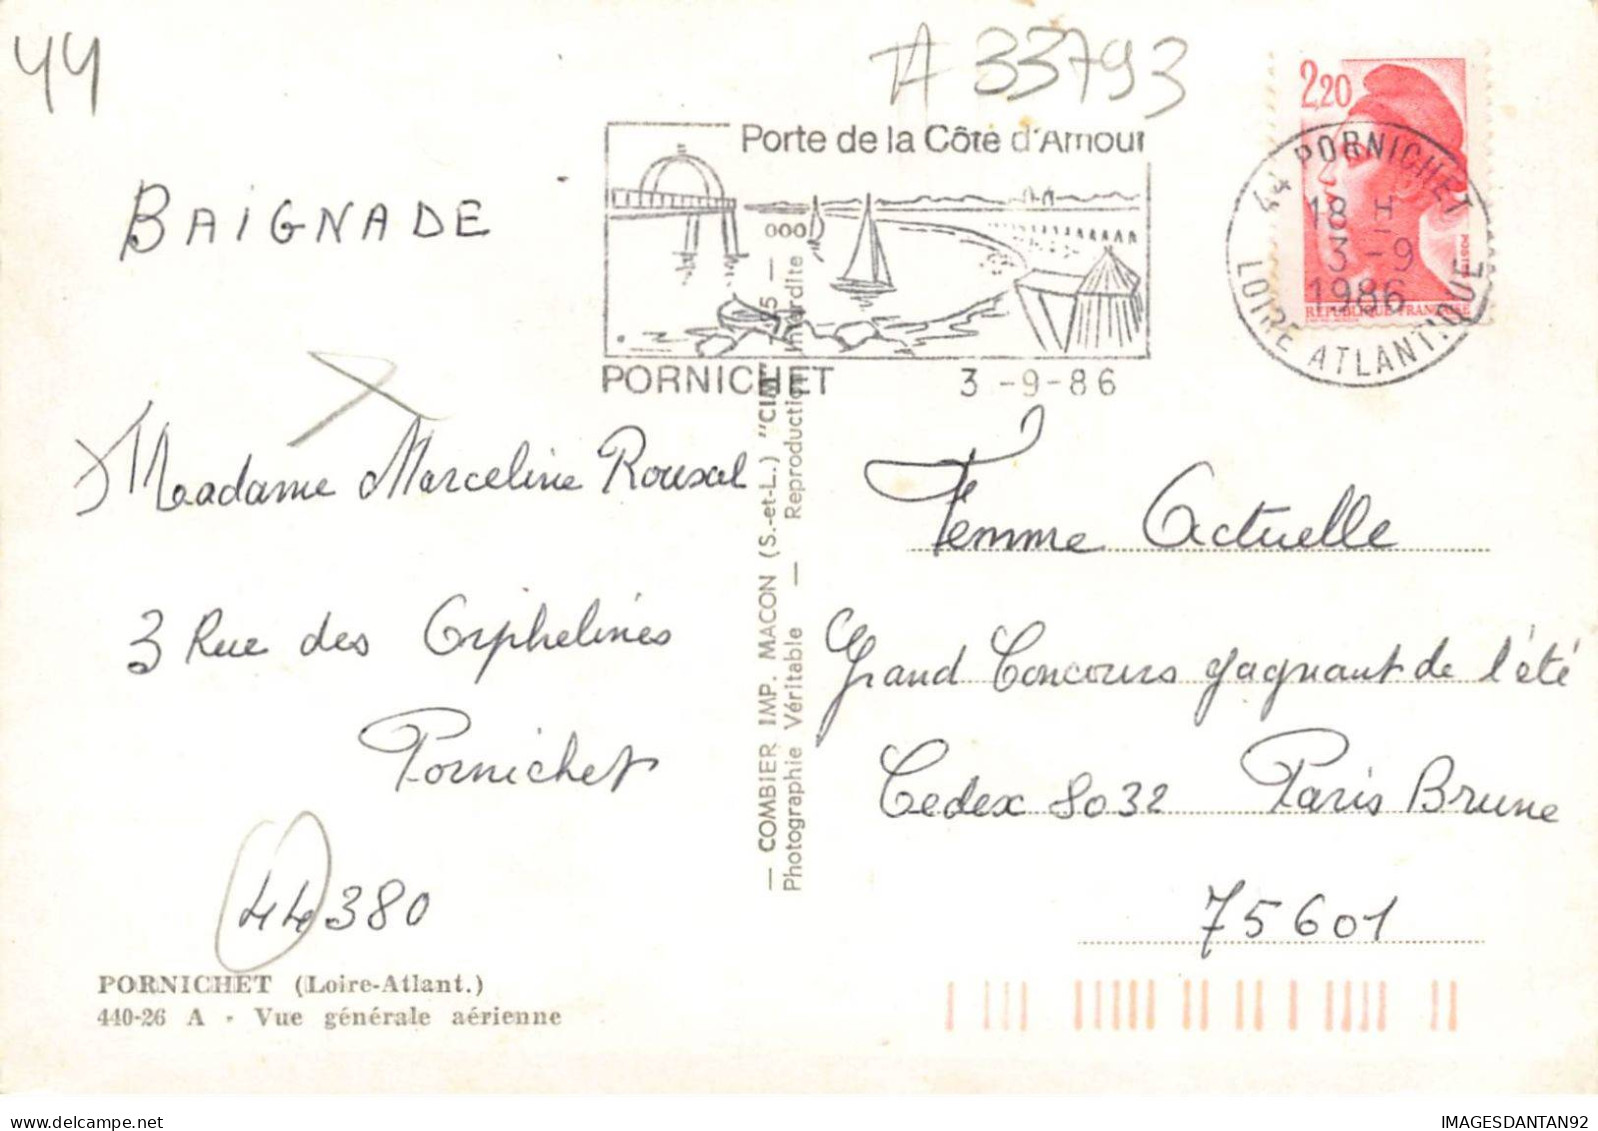 44
A 33793
Porte de la Côte d'Amour
PORNICHET 3 -9-86
44 PORNICHET
18 H
3 -9
1986
LOIRE ATLANTIQUE
2,20
POSTES
REPUBLIQUE FRANÇAISE
BAIGNADE
Madame Marceline Rouxal
3 Rue des Orphelines
Pornichet
44380
PORNICHET (Loire-Atlant.)
440-26 A - Vue générale aérienne
— COMBIER IMP. MACON (S.-et-L.) "CIM"
Photographie Véritable — Reproduction interdite —
Femme Actuelle
Grand Concours gagnant de l'été
Cedex 8032 Paris Brune
75601
IMAGESDANTAN92